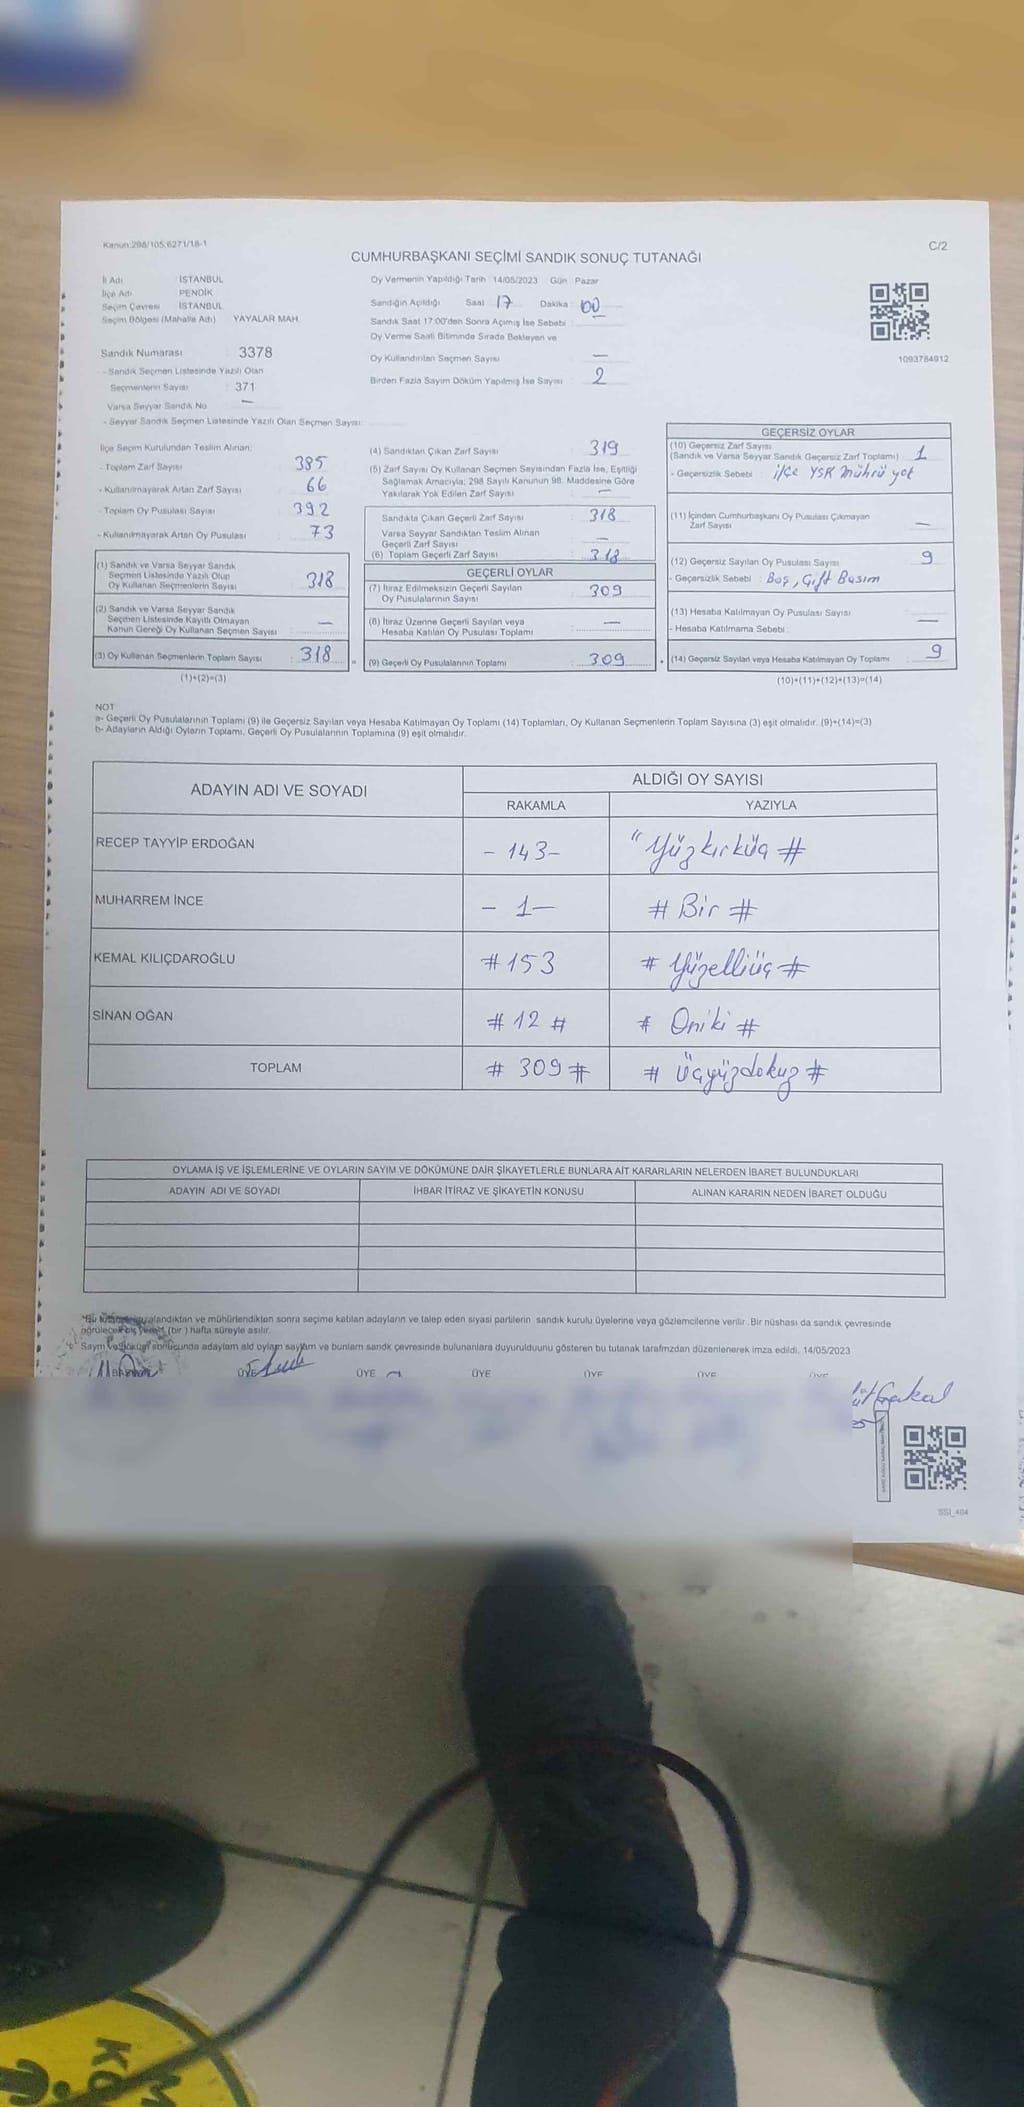 Kanun:298/105,6271/18-1
C/2
CUMHURBAŞKANI SEÇİMİ SANDIK SONUÇ TUTANAĞI
İl Adı : İSTANBUL
İlçe Adı : PENDİK
Seçim Çevresi : İSTANBUL
Seçim Bölgesi (Mahalle Adı) : YAYALAR MAH.
Sandık Numarası : 3378
- Sandık Seçmen Listesinde Yazılı Olan
Seçmenlerin Sayısı : 371
Varsa Seyyar Sandık No : —
- Seyyar Sandık Seçmen Listesinde Yazılı Olan Seçmen Sayısı:
Oy Vermenin Yapıldığı Tarih : 14/05/2023 Gün : Pazar
Sandığın Açıldığı Saat : 17 Dakika : 00
Sandık Saat 17:00'den Sonra Açılmış İse Sebebi :
Oy Verme Saati Bitiminde Sırada Bekleyen ve
Oy Kullandırılan Seçmen Sayısı : —
Birden Fazla Sayım Döküm Yapılmış İse Sayısı : 2
1093784912
İlçe Seçim Kurulundan Teslim Alınan;
- Toplam Zarf Sayısı : 385
- Kullanılmayarak Artan Zarf Sayısı : 66
- Toplam Oy Pusulası Sayısı : 392
- Kullanılmayarak Artan Oy Pusulası : 73
(1) Sandık ve Varsa Seyyar Sandık
Seçmen Listesinde Yazılı Olup
Oy Kullanan Seçmenlerin Sayısı : 318
(2) Sandık ve Varsa Seyyar Sandık
Seçmen Listesinde Kayıtlı Olmayan
Kanun Gereği Oy Kullanan Seçmen Sayısı : —
(3) Oy Kullanan Seçmenlerin Toplam Sayısı : 318
(1)+(2)=(3)
(4) Sandıktan Çıkan Zarf Sayısı : 319
(5) Zarf Sayısı Oy Kullanan Seçmen Sayısından Fazla İse, Eşitliği
Sağlamak Amacıyla; 298 Sayılı Kanunun 98. Maddesine Göre
Yakılarak Yok Edilen Zarf Sayısı : —
Sandıkta Çıkan Geçerli Zarf Sayısı : 318
Varsa Seyyar Sandıktan Teslim Alınan
Geçerli Zarf Sayısı : —
(6) Toplam Geçerli Zarf Sayısı : 318
GEÇERLİ OYLAR
(7) İtiraz Edilmeksizin Geçerli Sayılan
Oy Pusulalarının Sayısı : 309
(8) İtiraz Üzerine Geçerli Sayılan veya
Hesaba Katılan Oy Pusulası Toplamı : —
(9) Geçerli Oy Pusulalarının Toplamı : 309
GEÇERSİZ OYLAR
(10) Geçersiz Zarf Sayısı
(Sandık ve Varsa Seyyar Sandık Geçersiz Zarf Toplamı) : 1
- Geçersizlik Sebebi : ilçe YSK mührü yok
(11) İçinden Cumhurbaşkanı Oy Pusulası Çıkmayan
Zarf Sayısı : —
(12) Geçersiz Sayılan Oy Pusulası Sayısı : 9
- Geçersizlik Sebebi : Boş, Çift Basım
(13) Hesaba Katılmayan Oy Pusulası Sayısı : —
- Hesaba Katılmama Sebebi :
(14) Geçersiz Sayılan veya Hesaba Katılmayan Oy Toplamı : 9
(10)+(11)+(12)+(13)=(14)
NOT
a- Geçerli Oy Pusulalarının Toplamı (9) ile Geçersiz Sayılan veya Hesaba Katılmayan Oy Toplamı (14) Toplamları, Oy Kullanan Seçmenlerin Toplam Sayısına (3) eşit olmalıdır. (9)+(14)=(3)
b- Adayların Aldığı Oyların Toplamı, Geçerli Oy Pusulalarının Toplamına (9) eşit olmalıdır.
ADAYIN ADI VE SOYADI
ALDIĞI OY SAYISI
RAKAMLA YAZIYLA
RECEP TAYYİP ERDOĞAN - 143- " Yüzkırküç #
MUHARREM İNCE - 1- # Bir #
KEMAL KILIÇDAROĞLU # 153 # Yüzelliüç #
SİNAN OĞAN # 12 # # Oniki #
TOPLAM # 309 # # Üçyüzdokuz #
OYLAMA İŞ VE İŞLEMLERİNE VE OYLARIN SAYIM VE DÖKÜMÜNE DAİR ŞİKAYETLERLE BUNLARA AİT KARARLARIN NELERDEN İBARET BULUNDUKLARI
ADAYIN ADI VE SOYADI İHBAR İTİRAZ VE ŞİKAYETİN KONUSU ALINAN KARARIN NEDEN İBARET OLDUĞU
*Bu tutanak imzalandıktan ve mühürlendikten sonra seçime katılan adayların ve talep eden siyasi partilerin sandık kurulu üyelerine veya gözlemcilerine verilir. Bir nüshası da sandık çevresinde
görülecek bir yere (bir ) hafta süreyle asılır.
Sayım ve döküm sonucunda adayların aldığı oyların sayıları ve bunların sandık çevresinde bulunanlara duyurulduğunu gösteren bu tutanak tarafımızdan düzenlenerek imza edildi. 14/05/2023
BAŞKAN ÜYE ÜYE ÜYE ÜYE ÜYE
SSI_404